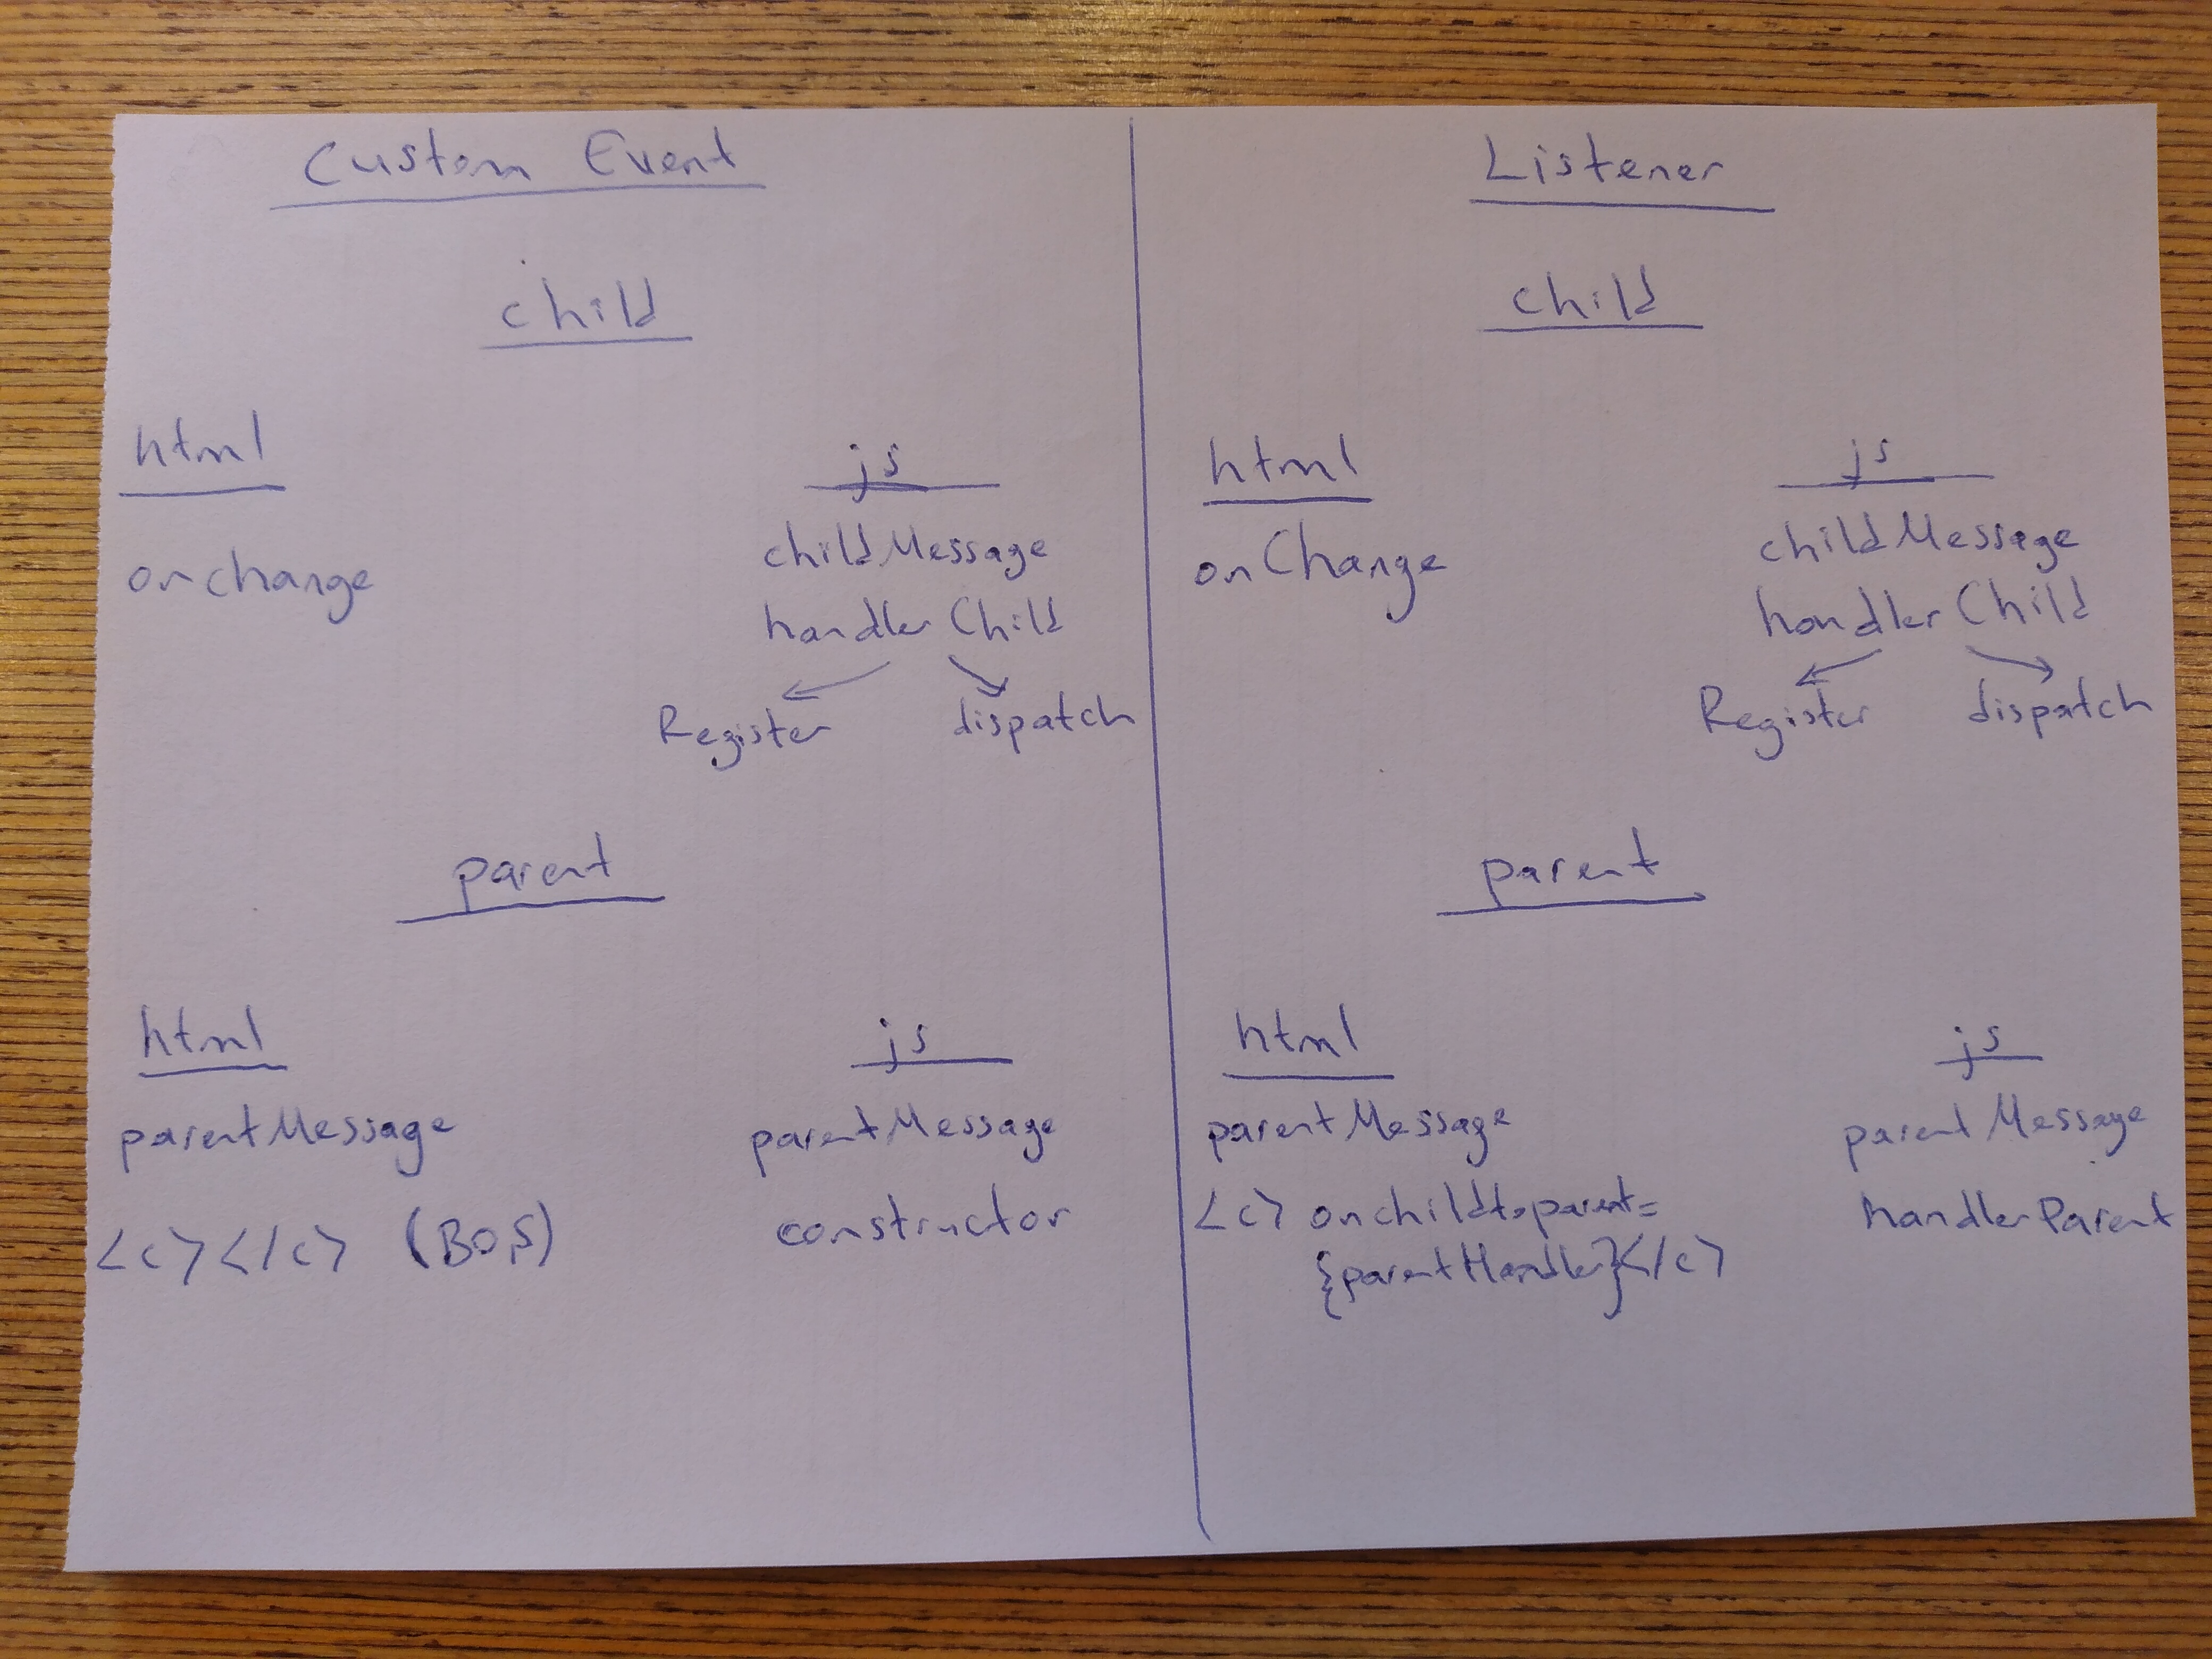 Custom Event
child
html
onchange
js
childMessage
handlerChild
Register dispatch
parent
html
parentMessage
<c></c> (BOŞ)
js
parentMessage
constructor
Listener
child
html
onChange
js
childMessage
handlerChild
Register dispatch
parent
html
parentMessage
<c> onchildtoparent=
{parentHandler}</c>
js
parentMessage
handlerParent